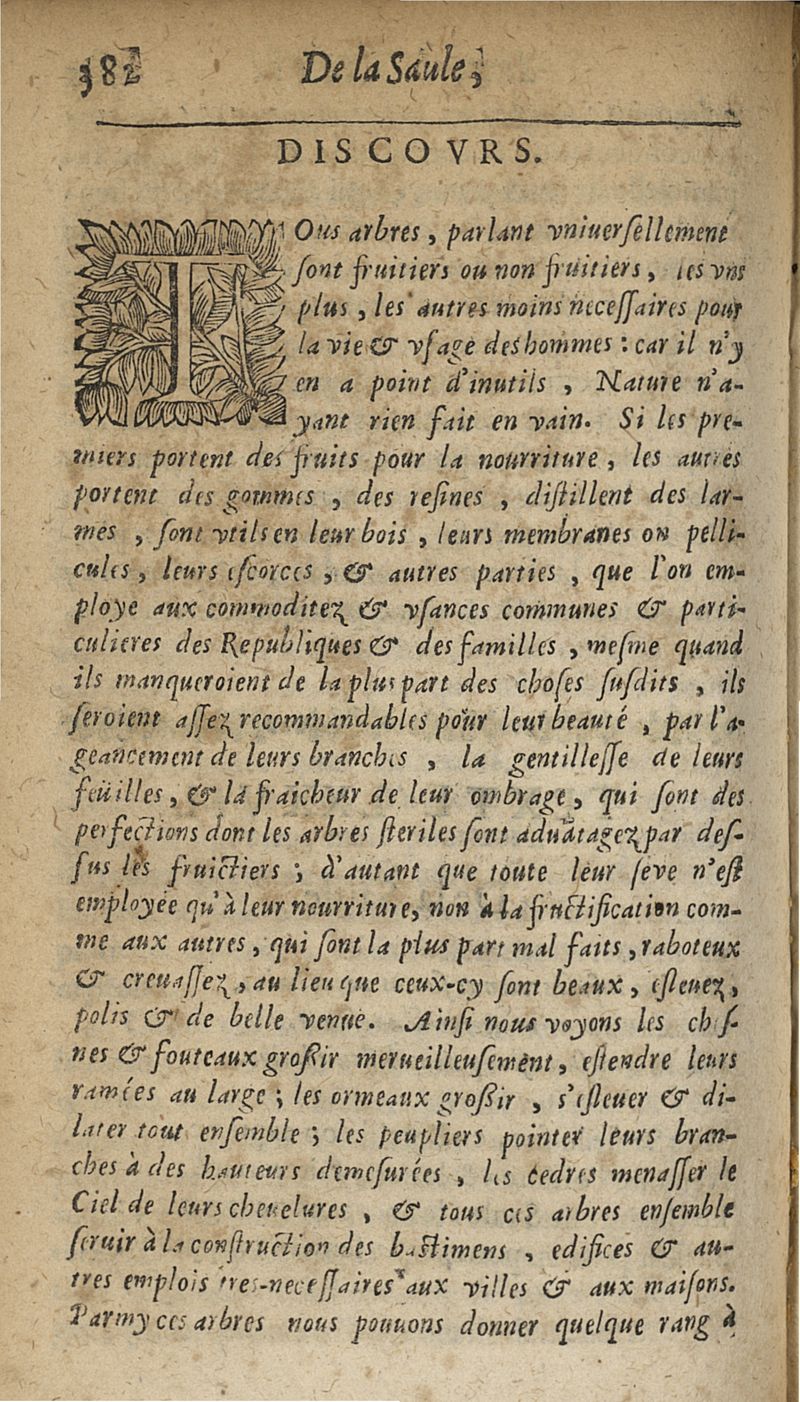 382 De la Saule,
DISCOVRS.
TOus arbres, parlant vniuersellement
sont fruitiers ou non fruitiers, les vns
plus, les autres moins necessaires pour
la vie & vsage des hommes : car il n'y
en a point d'inutils, Nature n'a-
yant rien fait en vain. Si les pre-
miers portent des fruits pour la nourriture, les autres
portent des gommes, des resines, distillent des lar-
mes, sont vtils en leur bois, leurs membranes ou pelli-
cules, leurs escorces, & autres parties, que l'on em-
ploye aux commoditez & vsances communes & parti-
culieres des Republiques & des familles, mesme quand
ils manqueroient de la plus part des choses susdits, ils
seroient assez recommandables pour leur beauté, par l'a-
geancement de leurs branches, la gentillesse de leurs
feüilles, & la fraicheur de leur ombrage, qui sont des
perfections dont les arbres steriles sont aduātagez par des-
sus les fruictiers ; d'autant que toute leur seve n'est
employée qu'à leur nourriture, non à la fructification com-
me aux autres, qui sont la plus part mal faits, raboteux
& creuassez, au lieu que ceux-cy sont beaux, esleuez,
polis & de belle venue. Ainsi nous voyons les ches-
nes & fouteaux grossir merueilleusement, estendre leurs
ramées au large ; les ormeaux grossir, s'esleuer & di-
later tout ensemble ; les peupliers pointer leurs bran-
ches à des hauteurs demesurées, les cedres menasser le
Ciel de leurs cheuelures, & tous ces arbres ensemble
seruir à la construction des bastimens, edifices & au-
tres emplois tres-necessaires aux villes & aux maisons.
Parmy ces arbres nous pouuons donner quelque rang à